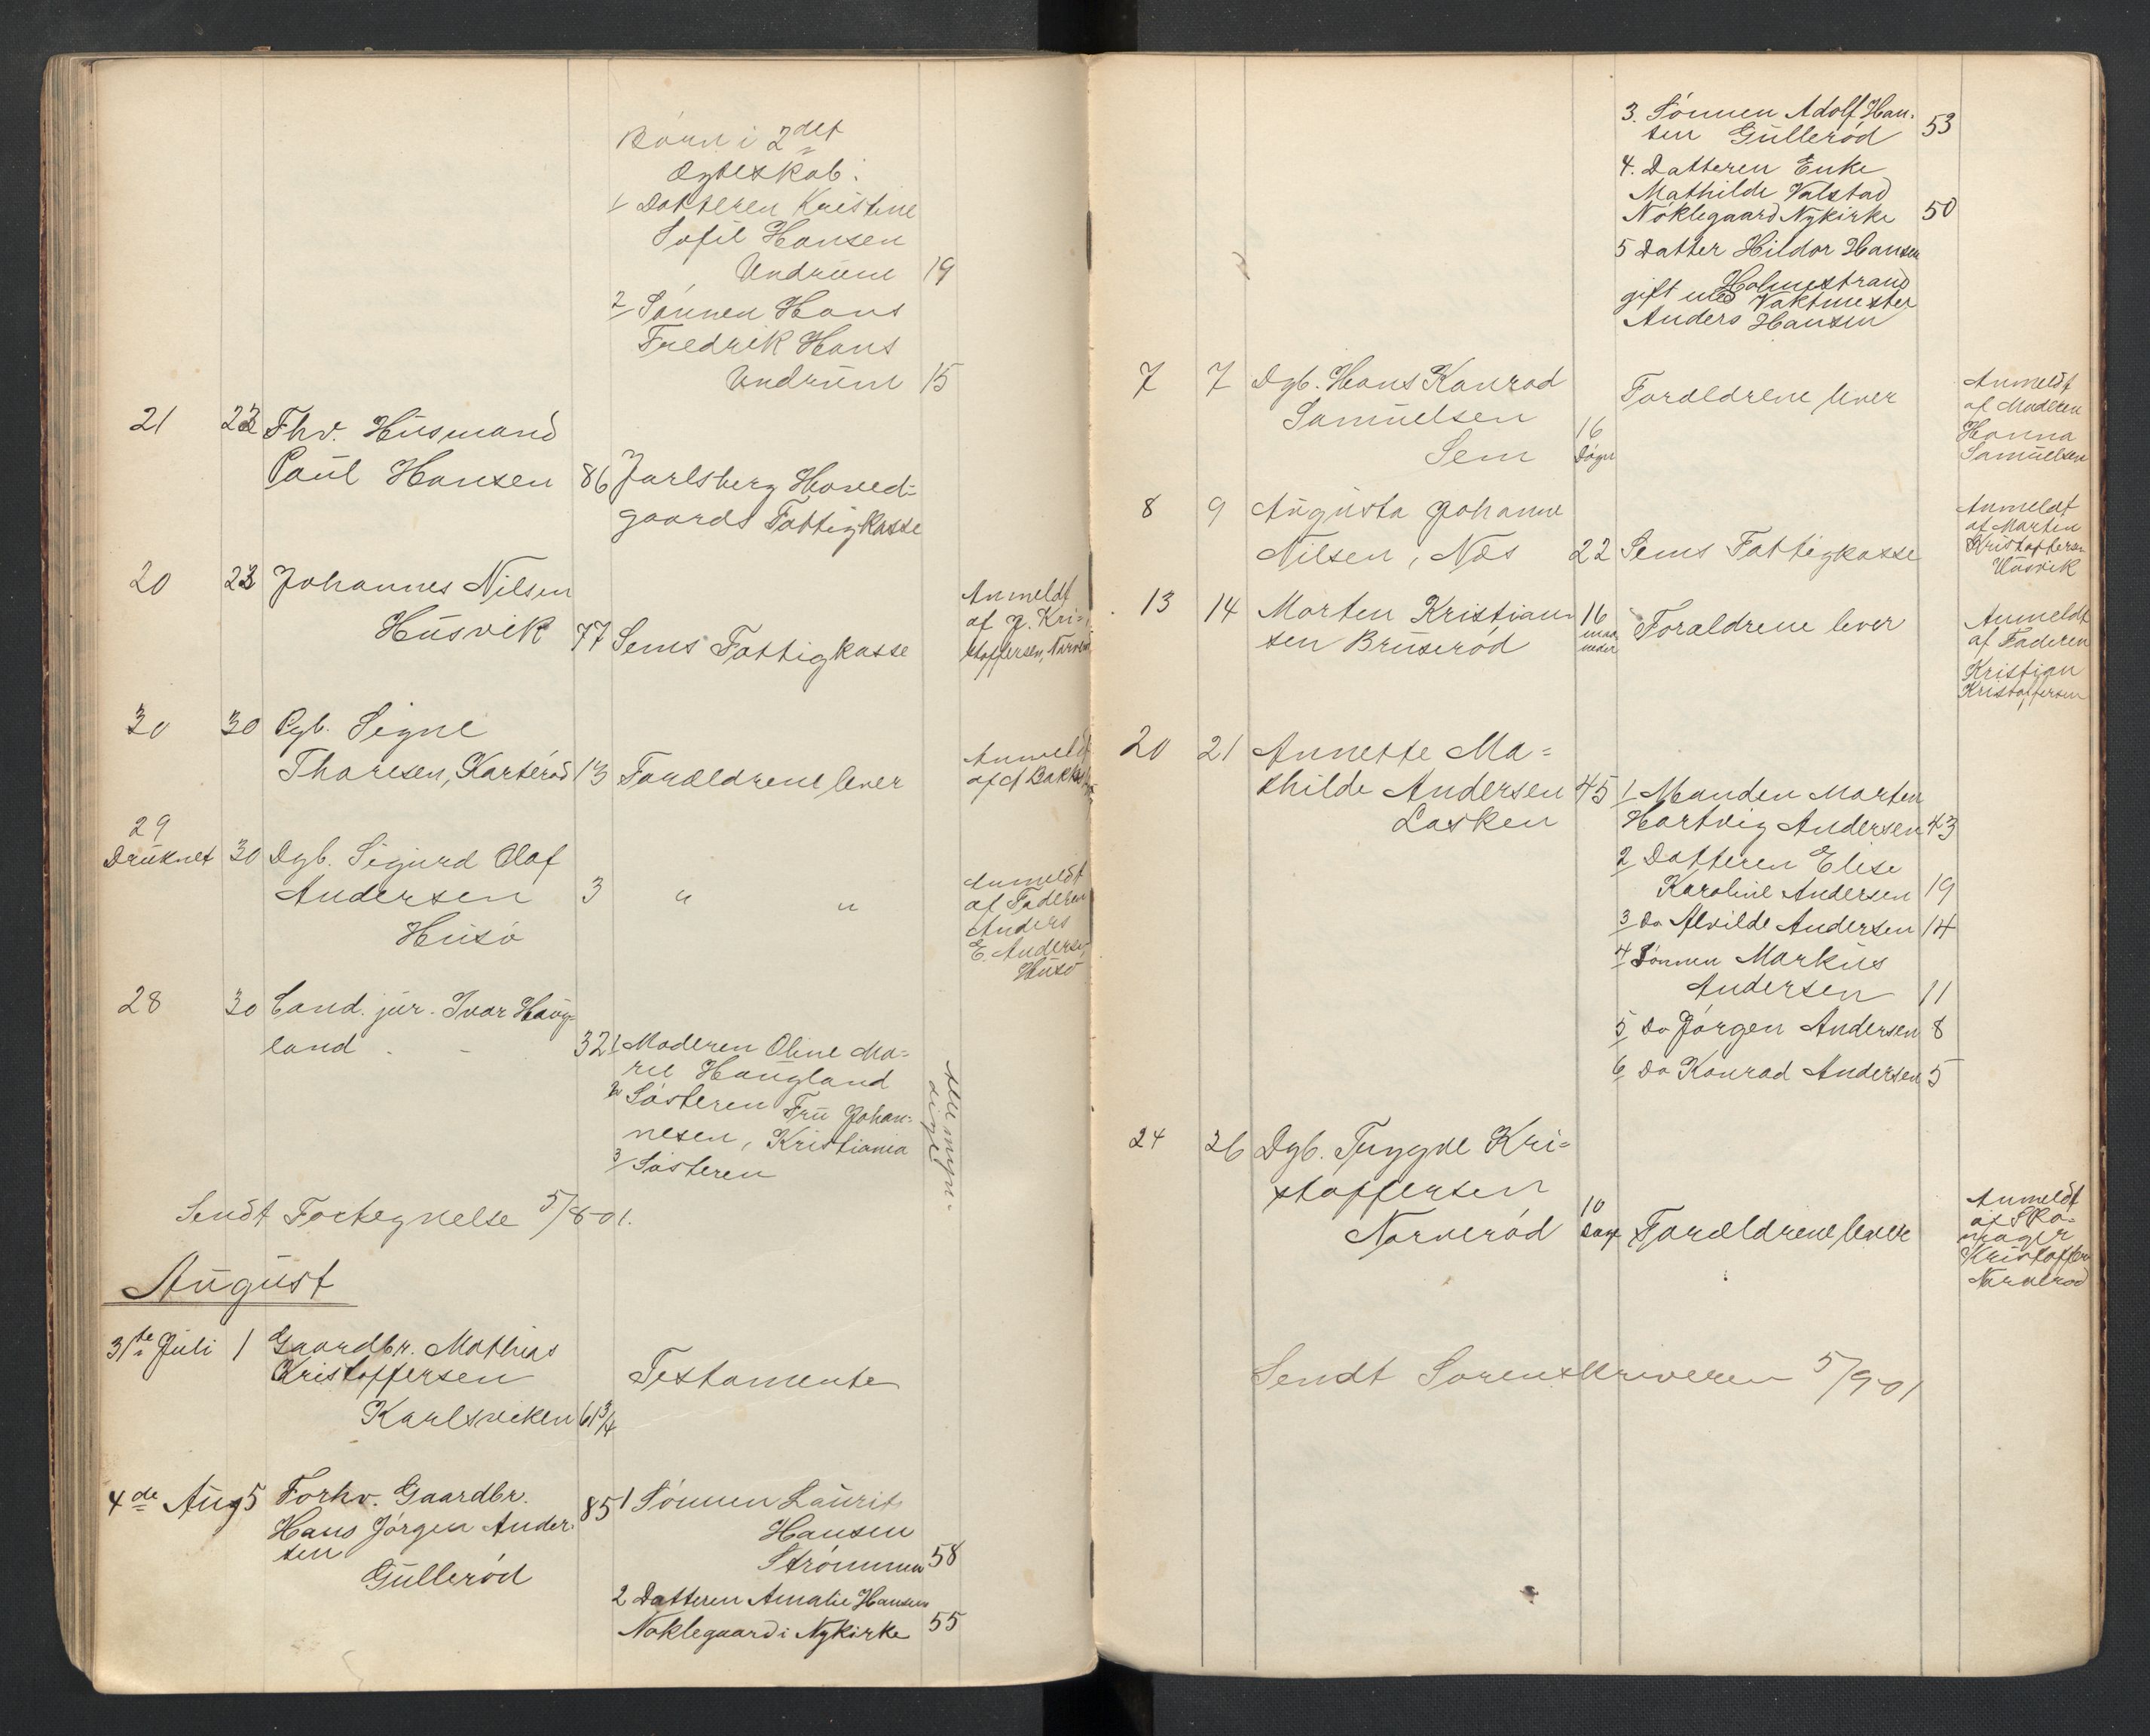 Børn i 2det
Ægteskab:
1 Datteren Kristine
Sofie Hansen
Undrum 19
2 Sønnen Hans
Fredrik Hans
Undrum 15
21 22 Fhv. Husmand
Paul Hansen 86 Jarlsberg Hoved-
gaards Fattigkasse
20 23 Johannes Nilsen
Husvik 77 Sems Fattigkasse
Anmeldt
af J. Kri-
stoffersen,
30 30 Pgb. Signe
Thoresen, Karterød 13 Forældrene lever
Anmeldt
af A Bakke
29
Druknet 30 Dgb. Sigurd Olaf
Andersen 3 " "
Husø
Anmeldt
af Faderen
Anders
E. Anderse,
Husø
28 30 Cand. jur. Ivar Haug-
land 32 1 Moderen Oline Ma-
rie Haugland
2 Søsteren Fru Johan-
nesen, Kristiania
3 Søsteren
Alle myn-
dige
Sendt Fortegnelse 5/8-01.
August
31te Juli 1 Gaardbr. Mathias
Kristoffersen Testamente
Karlsviken 61 3/4
4de Aug 5 Forhv. Gaardbr. 85 1 Sønnen Laurits
Hans Jørgen Ander-
sen Hansen
Gullerød Strømmen 58
2 Datteren Amalie Hansen
Nøklegaard i Nykirke 55
3. Sønnen Adolf Han-
sen Gullerød 53
4. Datteren Enke
Mathilde Valstad
Nøklegaard Nykirke 50
5 Datter Hildor Hansen
Holmestrand
gift med Vaktmester
Anders Hansen
7 7 Dgb. Hans Konrad
Samuelsen 16
Sem Døgn
Forældrene lever
Anmeldt
af Moderen
Hanna
Samuelsen
8 9 Augusta Johanne
Nilsen, Næs 22 Sems Fattigkasse
Anmeldt
af Martin
Kristoffersen
Husvik
13 14 Morten Kristian-
sen Bruserød 16
maa-
neder
Forældrene lever
Anmeldt
af Faderen
Kristian
Kristoffersen
20 21 Annette Ma-
thilde Andersen 45 1 Manden Morten
Lasken Hartvig Andersen 43
2 Datteren Elise
Karoline Andersen 19
3 Do Alvilde Andersen 14
4 Sønnen Markus
Andersen 11
5 Do Jørgen Andersen 8
6 Do Konrad Andersen 5
24 26 Dgb. Trygve Kri-
stoffersen 10
Narverød Dage Forældrene lever
Anmeldt
af Sko-
mager
Kristoffers
Narverød
Sendt Sorenskriveren 5/9-01